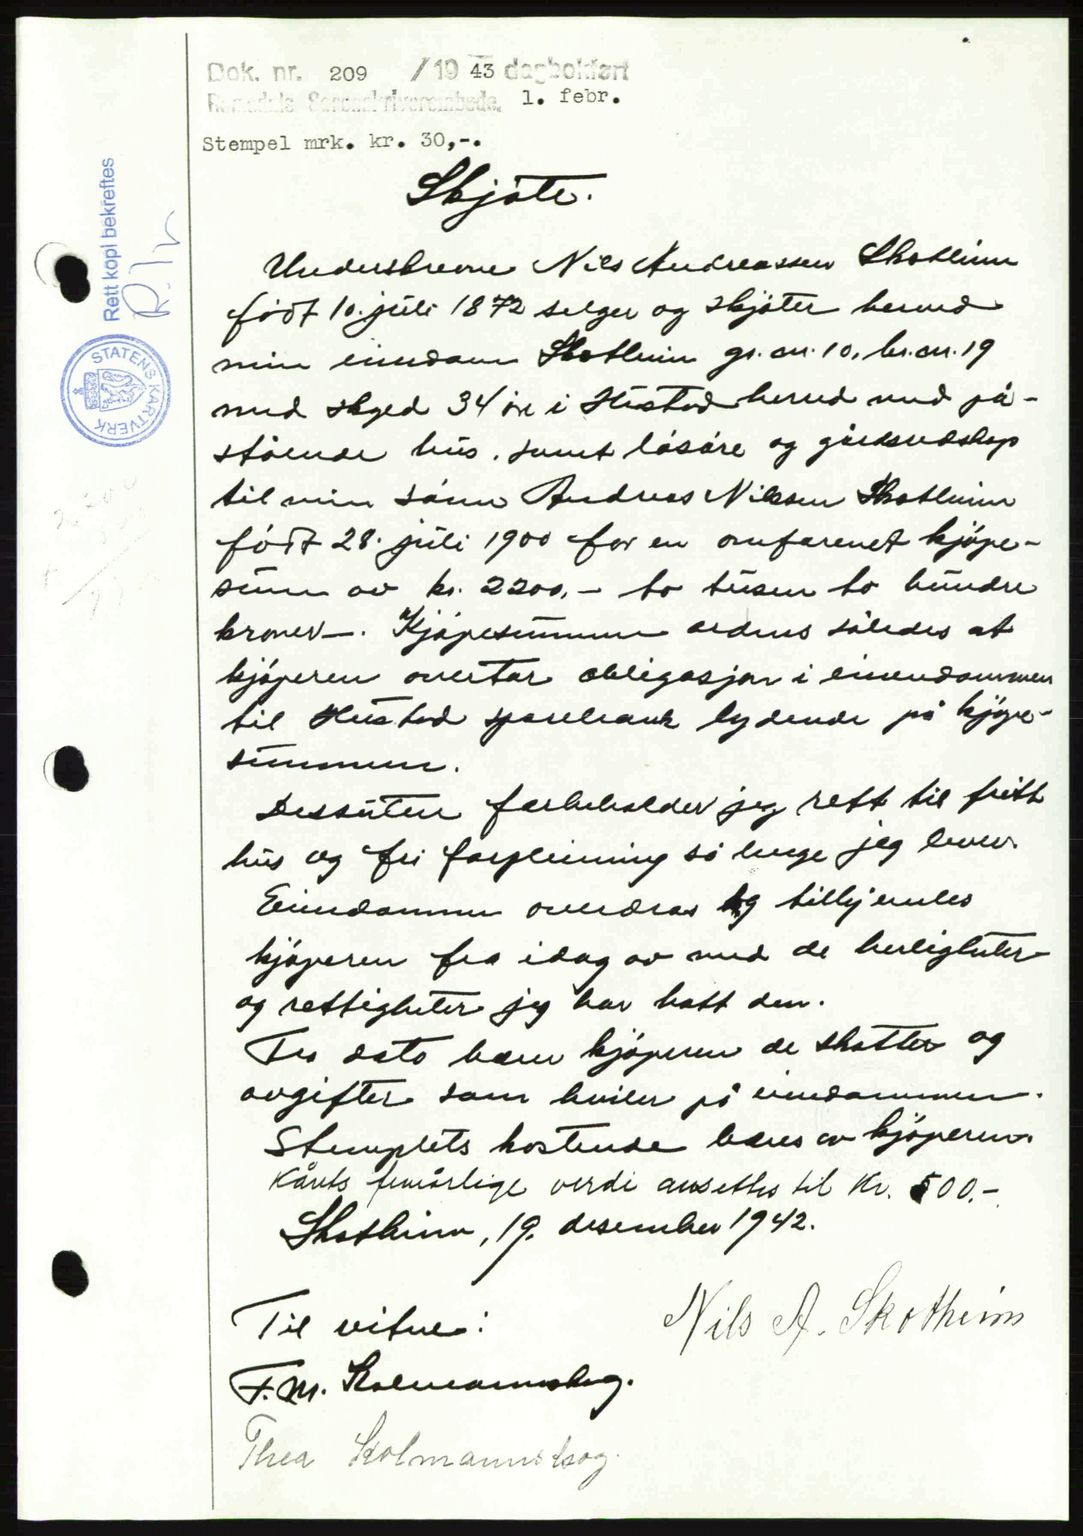 Dok. nr. 209 /19 43 dagbokført
Romsdals Sorenskriverembede. 1. febr.
Stempel mrk. kr. 30,-.
Rett kopi bekreftes
STATENS KARTVERK
Skjöte.
Underskrevne Nils Andreassen Skotheim
född 10. juli 1872 selger og skjöter herved
min eiendom Skotheim gr. nr. 10, br. nr. 19
med skyld 34 öre i Hustad herred med på-
stående hus, samt lösöre og gårdsredskap
til min sönn Andreas Nilssen Skotheim
född 28. juli 1900 for en omforenet kjöpe-
sum av kr. 2200,- to tusen to hundre
kroner-. Kjöpesummen ordnes således at
kjöperen overtar obligasjon i eiendommen
til Hustad sparebank lydende på kjöpe-
summen.
Dessuten forbeholder jeg rett til fritt
hus og fri forpleining så lenge jeg lever.
Eiendommen overdras og tilhjemles
kjöperen fra idag av med de herligheter
og rettigheter jeg har hatt den.
Fra dato bærer kjöperen de skatter og
avgifter som hviler på eiendommen.
Stemplets kostende bæres av kjöperen.
Kårets femårlige verdi ansettes til Kr. 500.-
Skotheim, 19. desember 1942.
Nils A. Skotheim
Til vitne:
T. M. Kolmannskog.
Thea Kolmannskog.